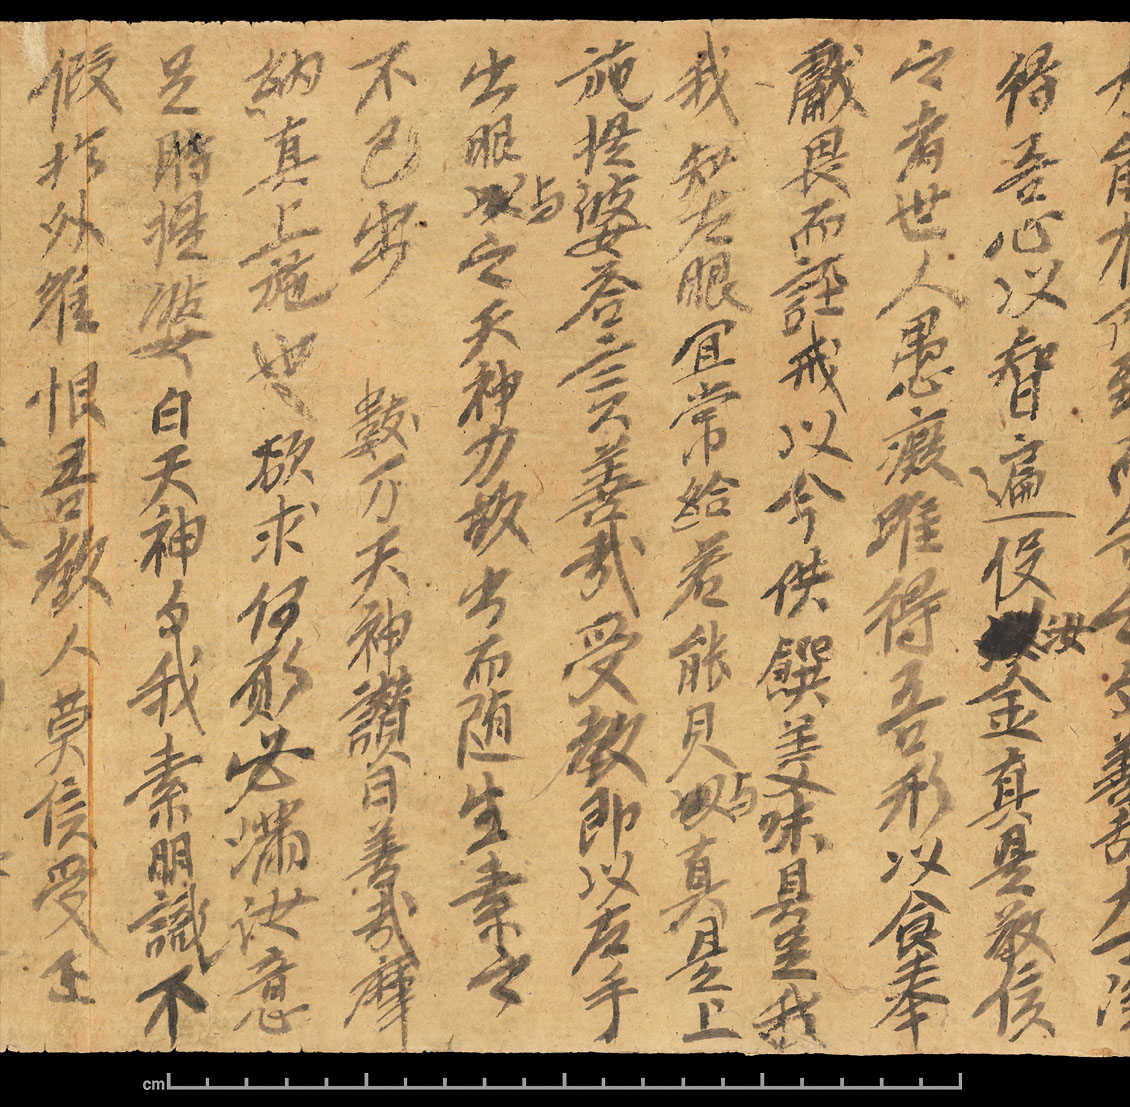 得吾心以智遍役汝金真是敬信
之者世人愚癡唯得吾形以食奉
獻畏而誣戒以今供饌美味具足我
我知左眼宜常給若能見与真是上
施提婆答言善哉受教即以左手
出眼与之天神力故出而随生索之
不已安 數万天神讚曰善哉摩
納真上施也欲求何願必滿汝意
是時提婆白天神我素明識不
假於外唯恨吾教人莫信受正
cm